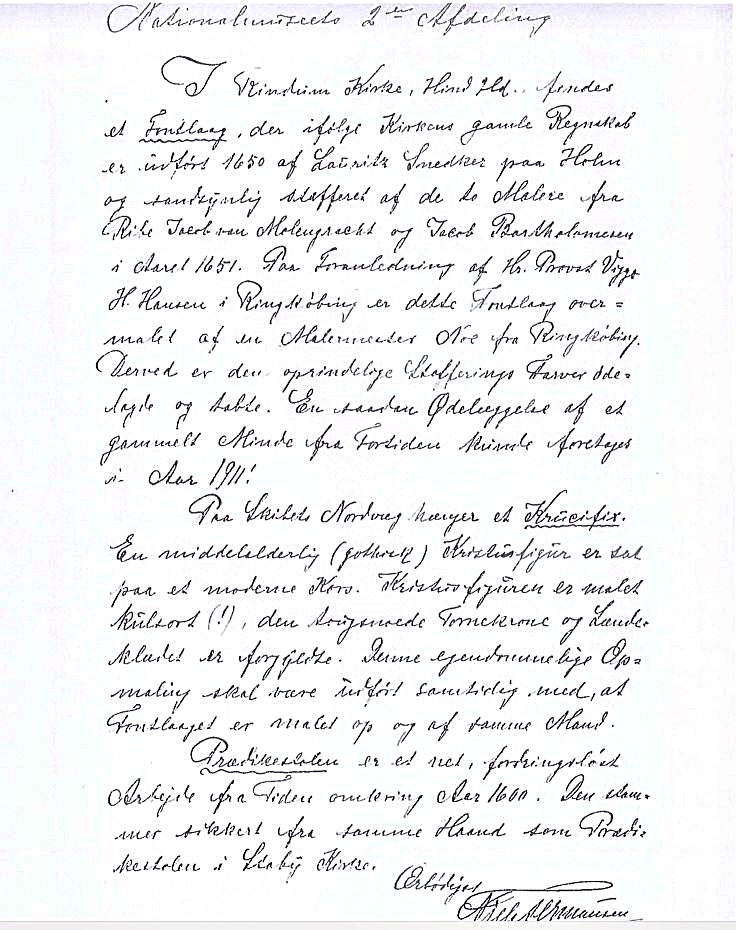 Nationalmuseets 2den Afdeling
I Rindum Kirke, Hind Hd.. findes
et Fontlaag, der ifölge Kirkens gamle Regnskab
er udfört 1650 af Lauritz Snedker paa Holm
og sandsynlig stafferet af de to Malere fra
Ribe Jacob van Molengracht og Jacob Bartholomesen
i Aaret 1651. Paa Foranledning af Hr. Provst Viggo
H. Hansen i Ringköbing er dette Fontlaag over=
malet af en Malermester Noe fra Ringköbing.
Derved er den oprindelige Stafferings Farver öde=
lagde og tabte. En saadan Ødelæggelse af et
gammelt Minde fra Fortiden kunde foretages
i Aar 1911!
Paa Skibets Nordvæg hænger et Krucifix.
En middelalderlig (gothisk) Kristusfigur er sat
paa et moderne Kors. Kristusfiguren er malet
kulsort (!), den tougsnoede Tornekrone og Lænde-
klædet er forgyldte. Denne ejendommelige Op=
maling skal være udfört samtidig med, at
Fontlaaget er malet op og af samme Mand.
Prædikestolen er et net, fordringslöst
Arbejde fra Tiden omkring Aar 1600. Den stam=
mer sikkert fra samme Haand som Prædi=
kestolen i Staby Kirke.
Ærbödigst